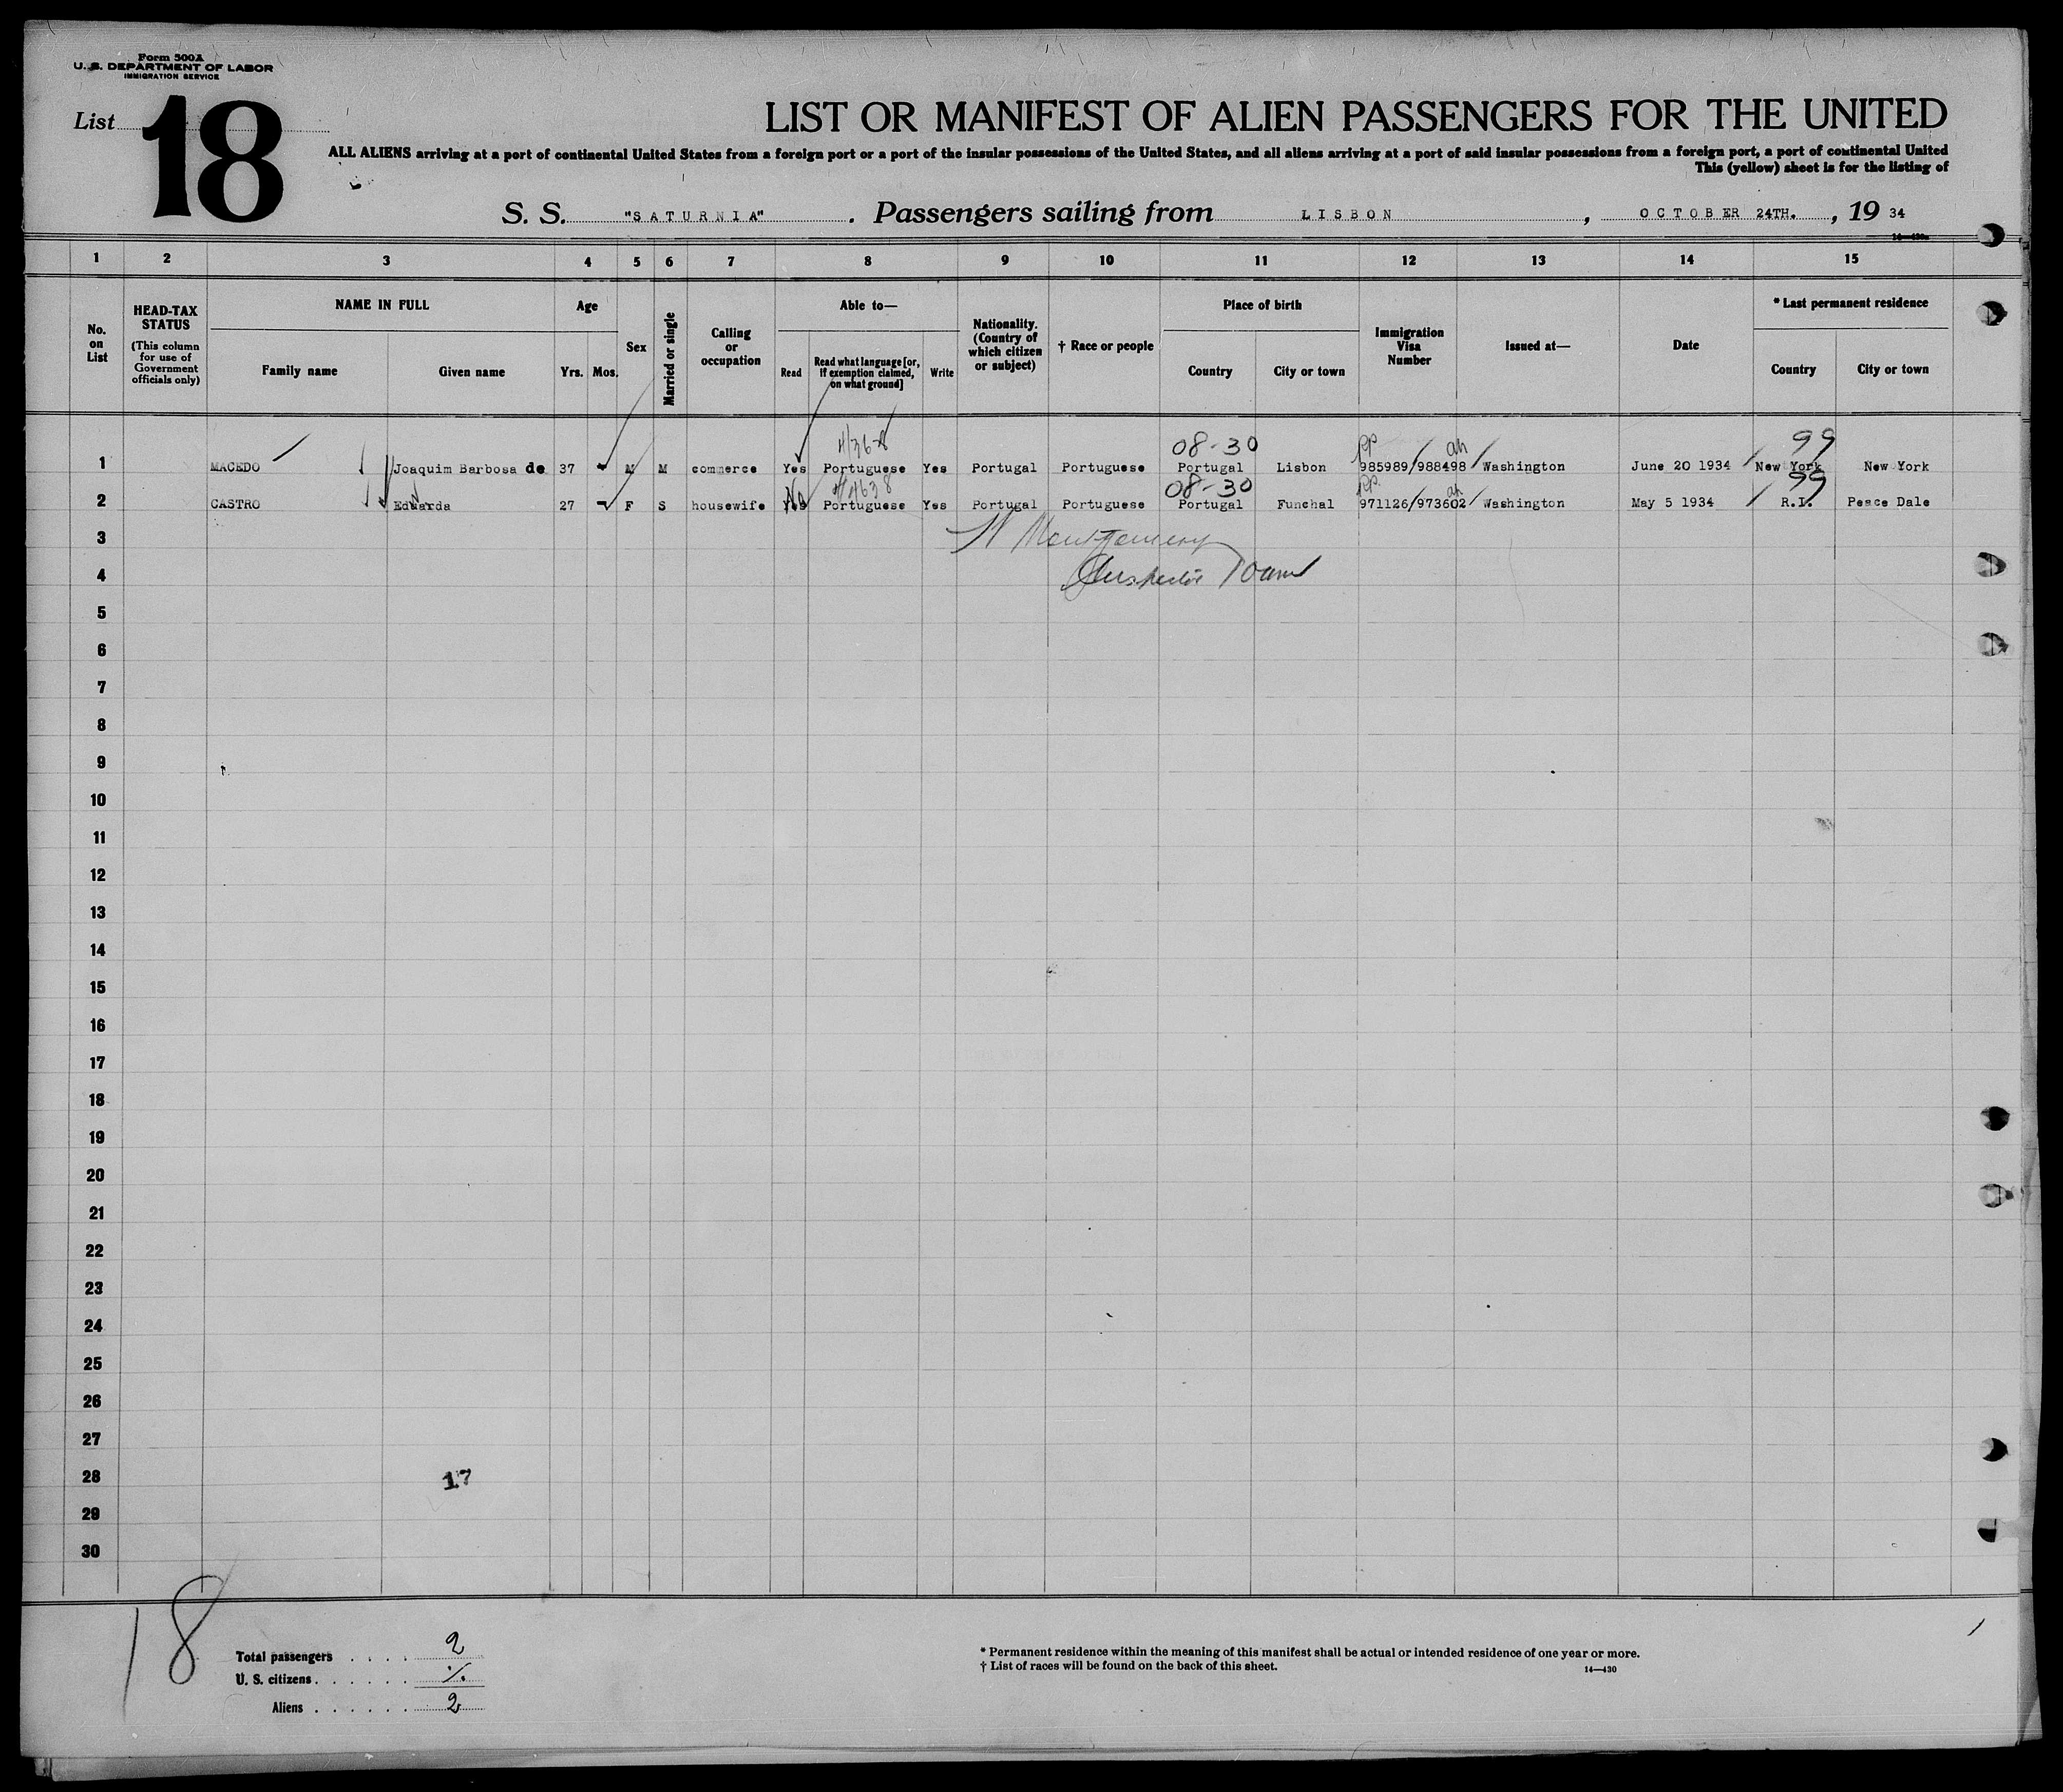 Form 500A
U. S. DEPARTMENT OF LABOR
IMMIGRATION SERVICE
List 18
LIST OR MANIFEST OF ALIEN PASSENGERS FOR THE UNITED
ALL ALIENS arriving at a port of continental United States from a foreign port or a port of the insular possessions of the United States, and all aliens arriving at a port of said insular possessions from a foreign port, a port of continental United
This (yellow) sheet is for the listing of
S. S. "SATURNIA". Passengers sailing from LISBON, OCTOBER 24TH., 1934
1 2 3 4 5 6 7 8 9 10 11 12 13 14 15
No. on List
HEAD-TAX STATUS
(This column for use of Government officials only)
NAME IN FULL
Family name
Given name
Age
Yrs. Mos.
Sex
Married or single
Calling or occupation
Able to—
Read
Read what language [or, if exemption claimed, on what ground]
Write
Nationality. (Country of which citizen or subject)
† Race or people
Place of birth
Country
City or town
Immigration Visa Number
Issued at—
Date
* Last permanent residence
Country
City or town
4/368 08-30 pp 99
1 MACEDO Joaquim Barbosa de 37 M M commerce Yes Portuguese Yes Portugal Portuguese Portugal Lisbon 985989/988498 Washington June 20 1934 New York New York
No 4/4638 08-30 pp 99
2 CASTRO Eduarda 27 F S housewife Yes Portuguese Yes Portugal Portuguese Portugal Funchal 971126/973602 Washington May 5 1934 R.I. Peace Dale
3 Montgomery
4
5
6
7
8
9
10
11
12
13
14
15
16
17
18
19
20
21
22
23
24
25
26
27
28 17
29
30
18
Total passengers 2
U. S. citizens ./.
Aliens 2
* Permanent residence within the meaning of this manifest shall be actual or intended residence of one year or more.
† List of races will be found on the back of this sheet.
14—430